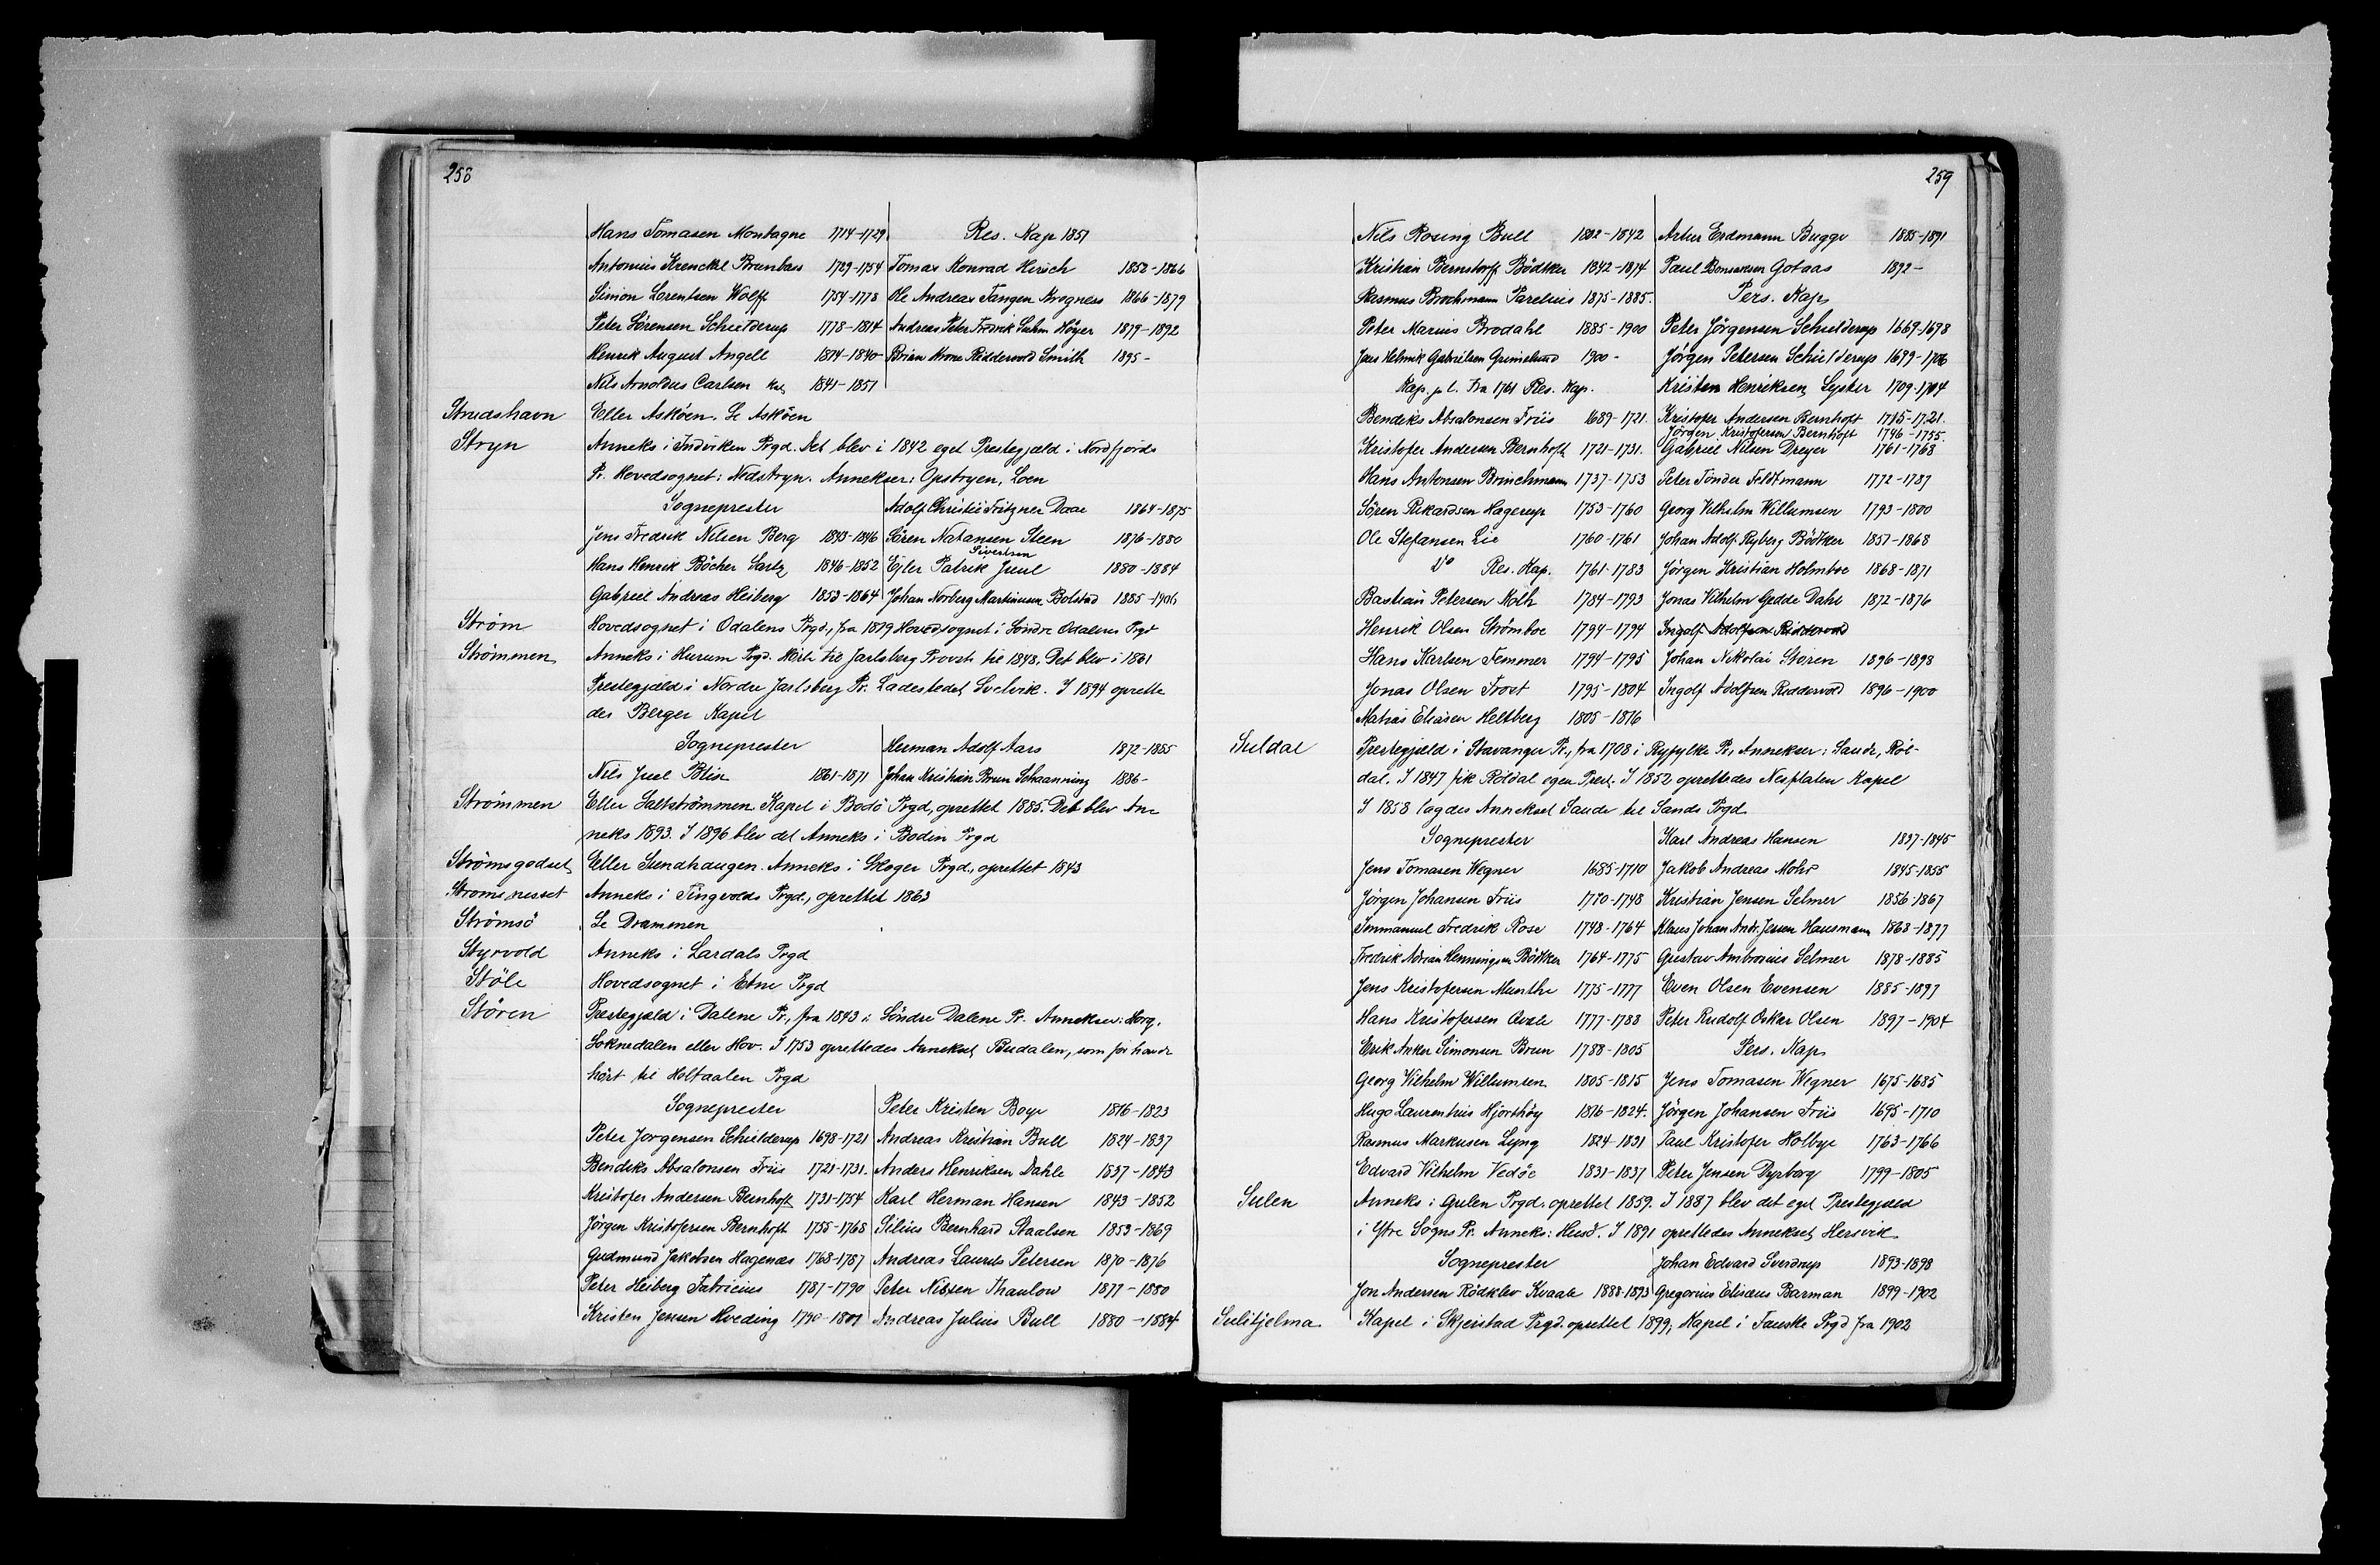 258
Hans Tomasen Montagne 1714-1729 Res. Kap 1851
Antonius Krenckel Brunbass 1729-1754 Tomas Konrad Hirsch 1852-1866
Simon Lorentsen Wolff 1754-1778 Ole Andreas Tangen Krogness 1866-1879
Peter Sörensen Schielderup 1778-1814 Andreas Peter Fredrik Suhm Höyer 1879-1892
Henrik August Angell 1814-1840 Brian Krone Riddervold Smith 1895-
Nils Arnoldus Carlsen Kap. 1841-1851
Strudshavn Eller Asköen. Se Asköen
Stryn Anneks i Indviken Prgd. Det blev i 1842 eget Prestegjæld i Nordfjords
Pr. Hovedsognet: Nedstryn. Annekser: Opstryen, Loen
Sogneprester Adolf Christie Fritzner Daae 1864-1875
Jens Fredrik Nilsen Berg 1843-1846 Sören Natansen Steen 1876-1880
Sivertsen
Hans Henrik Böcher Sartz 1846-1852 Ejler Patrik Juul 1880-1884
Gabriel Andreas Heiberg 1853-1864 Johan Norberg Martinusen Bolstad 1885-1906
Ström Hovedsognet i Odalens Prgd, fra 1819 Hovedsognet i Söndre Odalens Prgd
Strömmen Anneks i Hurum Prgd. Hörte til Jarlsberg Provsti til 1848. Det blev i 1861
Prestegjæld i Nordre Jarlsberg Pr. Ladestedet Svelvik. I 1894 oprette
des Berger Kapel
Sogneprester Herman Adolf Aars 1872-1885
Nils Juel Blix 1861-1871 Johan Kristian Brun Schaanning 1886-
Strömmen Eller Saltströmmen. Kapel i Bodö Prgd, oprettet 1885. Det blev An-
neks 1893. I 1896 blev det Anneks i Bodin Prgd
Strömsgodset Eller Sundhaugen. Anneks i Skoger Prgd., oprettet 1843
Strömsnesset Anneks i Tingvolds Prgd., oprettet 1863
Strömsö Se Drammen
Styrvold Anneks i Lardals Prgd
Stöle Hovedsognet i Etne Prgd
Stören Prestegjæld i Dalene Pr., fra 1843 i Söndre Dalene Pr. Annekser: Horg,
Soknedalen eller Hov. I 1753 oprettedes Annekset Budalen, som för havde
hört til Holtaalen Prgd
Sogneprester Peter Kristen Boye 1816-1823
Peter Jörgensen Schielderup 1698-1721 Andreas Kristian Bull 1824-1837
Bendiks Absalonsen Friis 1721-1731. Anders Henriksen Dahle 1837-1843
Kristofer Andersen Bernhoft 1731-1754 Karl Herman Hansen 1843-1852
Jörgen Kristofersen Bernhoft 1755-1768 Silius Bernhard Staalsen 1853-1869
Gudmund Jakobsen Hagenæs 1768-1787 Andreas Laurits Petersen 1870-1876
Peter Heiberg Fabricius 1787-1790 Peter Nilsen Thaulow 1877-1880
Kristen Jensen Hveding 1790-1801 Andreas Julius Bull 1880-1884
259
Nils Rosing Bull 1802-1842 Artur Erdmann Bugge 1885-1891
Kristian Bernstorff Bödtker 1842-1874 Paul Bonsaksen Gotaas 1892-
Rasmus Brochmann Parelius 1875-1885. Pers. Kap.
Peter Marius Brodahl 1885-1900 Peter Jörgensen Schielderup 1669-1698
Jens Helmik Gabrielsen Grimelund 1900- Jörgen Petersen Schielderup 1699-1706
Kap. p. l. Fra 1761 Res. Kap. Kristen Henriksen Lyster 1709-1714
Bendiks Absalonsen Friis 1689-1721. Kristofer Andersen Bernhoft 1715-1721.
Jörgen Kristofersen Bernhoft 1746-1755.
Kristofer Andersen Bernhoft 1721-1731. Gabriel Nilsen Dreyer 1761-1768
Hans Antonsen Brinchmann 1737-1753 Peter Tönder Feldtmann 1772-1787
Sören Rikardsen Hagerup 1753-1760 Georg Vilhelm Willumsen 1793-1800
Ole Stefansen Lie 1760-1761 Johan Adolf Ryberg Bödtker 1857-1868
Do Res. Kap. 1761-1783 Jörgen Kristian Holmboe 1868-1871
Bastian Petersen Moth 1784-1793 Jonas Vilhelm Gedde Dahl 1872-1876
Henrik Olsen Strömboe 1794-1794 Ingolf Adolfsen Riddervold
Hans Karlsen Temmer 1794-1795 Johan Nikolai Stören 1896-1898
Jonas Olsen Frost 1795-1804 Ingolf Adolfsen Riddervold 1896-1900
Matias Eliasen Heltberg 1805-1816
Suldal Prestegjæld i Stavanger Pr., fra 1708 i Ryfylke Pr, Annekser: Saude, Röl-
dal. I 1847 fik Röldal egen Prest. I 1852 oprettedes Nesflaten Kapel
I 1858 lagdes Annekset Saude til Sands Prgd.
Sogneprester Karl Andreas Hansen 1837-1845
Jens Tomasen Wegner 1685-1710 Jakob Andreas Mohr 1845-1855
Jörgen Johansen Friis 1710-1748 Kristian Jensen Selmer 1856-1867
Immanuel Fredrik Rose 1748-1764 Klaus Johan Andr. Jessen Hausmann 1868-1877
Fredrik Adrian Henningsen Bödtker 1764-1775 Gustav Ambrosius Selmer 1878-1885
Jens Kristofersen Munthe 1775-1777 Even Olsen Evensen 1885-1897
Hans Kristofersen Qvale 1777-1788 Peter Rudolf Oskar Olsen 1897-1904
Erik Anker Simonsen Brun 1788-1805 Pers. Kap.
Georg Vilhelm Willumsen 1805-1815 Jens Tomasen Wegner 1675-1685
Hugo Laurentius Hjorthöy 1816-1824. Jörgen Johansen Friis 1695-1710
Rasmus Markusen Lyng 1824-1831 Paul Kristofer Holbye 1763-1766
Edvard Vilhelm Vedöe 1831-1837 Peter Jensen Dyrberg 1799-1805
Sulen Anneks i Gulen Prgd, oprettet 1859. I 1887 blev det eget Prestegjæld
i Ytre Sogns Pr. Anneks: Husö. I 1891 oprettedes Annekset Hersvik
Sogneprester Johan Edvard Sverdrup 1893-1898
Jon Andersen Rödklev Kvaale 1888-1893 Gregorius Elisæus Barman 1899-1902
Sulitjelma Kapel i Skjerstad Prgd. oprettet 1899; Kapel i Fauske Prgd fra 1902